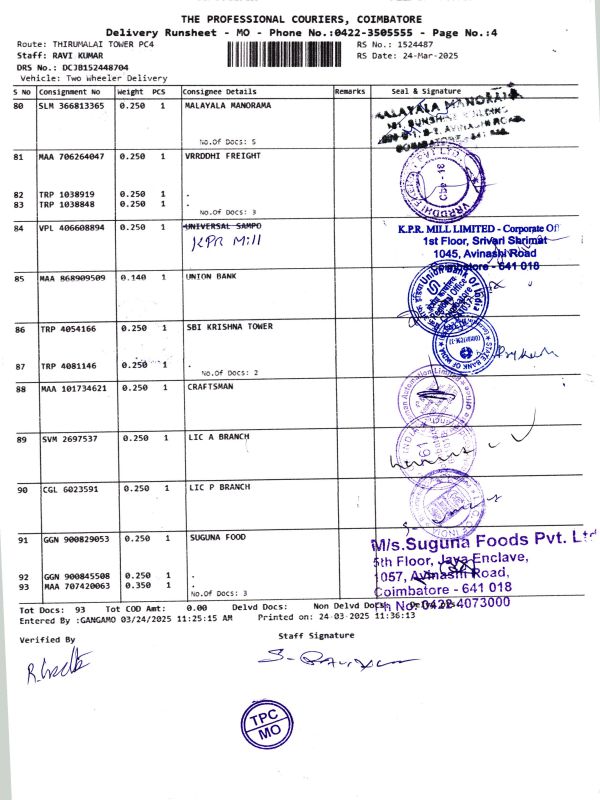 THE PROFESSIONAL COURIERS, COIMBATORE
Delivery Runsheet - MO - Phone No.:0422-3505555 - Page No.:4
Route: THIRUMALAI TOWER PC4 RS No.: 1524487
Staff: RAVI KUMAR RS Date: 24-Mar-2025
DRS No.: DCJB152448704
Vehicle: Two Wheeler Delivery
S No Consignment No Weight PCS Consignee Details Remarks Seal & Signature
80 SLM 366813365 0.250 1 MALAYALA MANORAMA
MALAYALA MANORAMA
No.Of Docs: 5
81 MAA 706264047 0.250 1 VRRDDHI FREIGHT
82 TRP 1038919 0.250 1 .
83 TRP 1038848 0.250 1 .
No.Of Docs: 3
84 VPL 406608894 0.250 1 UNIVERSAL SAMPO
KPR Mill
K.P.R. MILL LIMITED - Corporate Of
1st Floor, Srivari Shrimat
1045, Avinashi Road
Coimbatore - 641 018
85 MAA 868909509 0.140 1 UNION BANK
Union Bank Of India
86 TRP 4054166 0.250 1 SBI KRISHNA TOWER
STATE BANK OF INDIA
87 TRP 4081146 0.250 1 .
No.Of Docs: 2
88 MAA 101734621 0.250 1 CRAFTSMAN
Automation Limited
89 SVM 2697537 0.250 1 LIC A BRANCH
90 CGL 6023591 0.250 1 LIC P BRANCH
91 GGN 900829053 0.250 1 SUGUNA FOOD
M/s.Suguna Foods Pvt. Ltd
5th Floor, Jaya Enclave,
1057, Avinashi Road,
Coimbatore - 641 018
Ph No: 0422-4073000
92 GGN 900845508 0.250 1 .
93 MAA 707420063 0.350 1 .
No.Of Docs: 3
Tot Docs: 93 Tot COD Amt: 0.00 Delvd Docs: Non Delvd Docs:
Entered By :GANGAMO 03/24/2025 11:25:15 AM Printed on: 24-03-2025 11:36:13
Verified By Staff Signature
TPC
MO